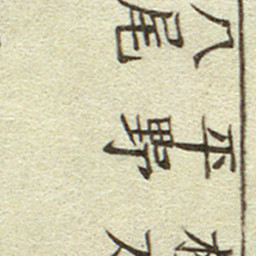 八尾
平野